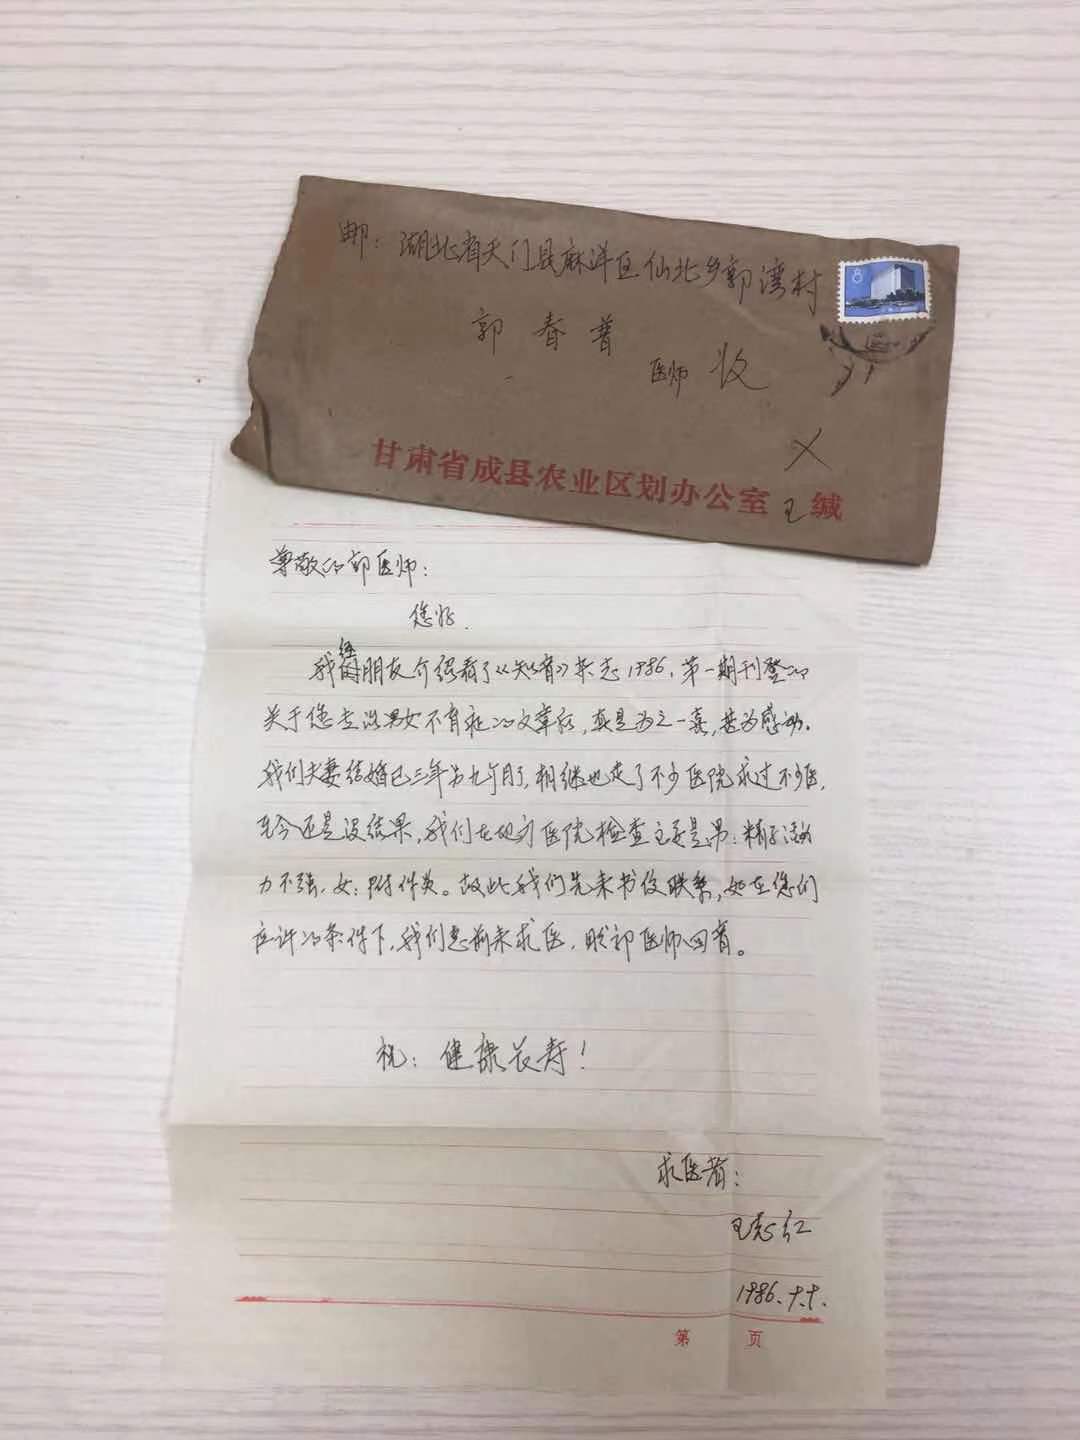 邮：湖北省天门县麻洋区仙北乡郭湾村
8
郭春普
医师 收
甘肃省成县农业区划办公室 王 缄
尊敬的郭医师：
您好.
我经朋友介绍看了《知音》杂志1986.第一期刊登的
关于您主治男女不育症的文章后，真是为之一喜，甚为感动.
我们夫妻结婚已三年另九个月了，相继也走了不少医院求过不少医，
至今还是没结果，我们在地方医院检查主要是男：精子活动
力不强，女：附件炎。故此我们先来书信联系，如在您们
应许的条件下，我们想前来求医，盼郭医师回音。
祝：健康长寿！
求医者：
王志红
1986.十.十.
第 页